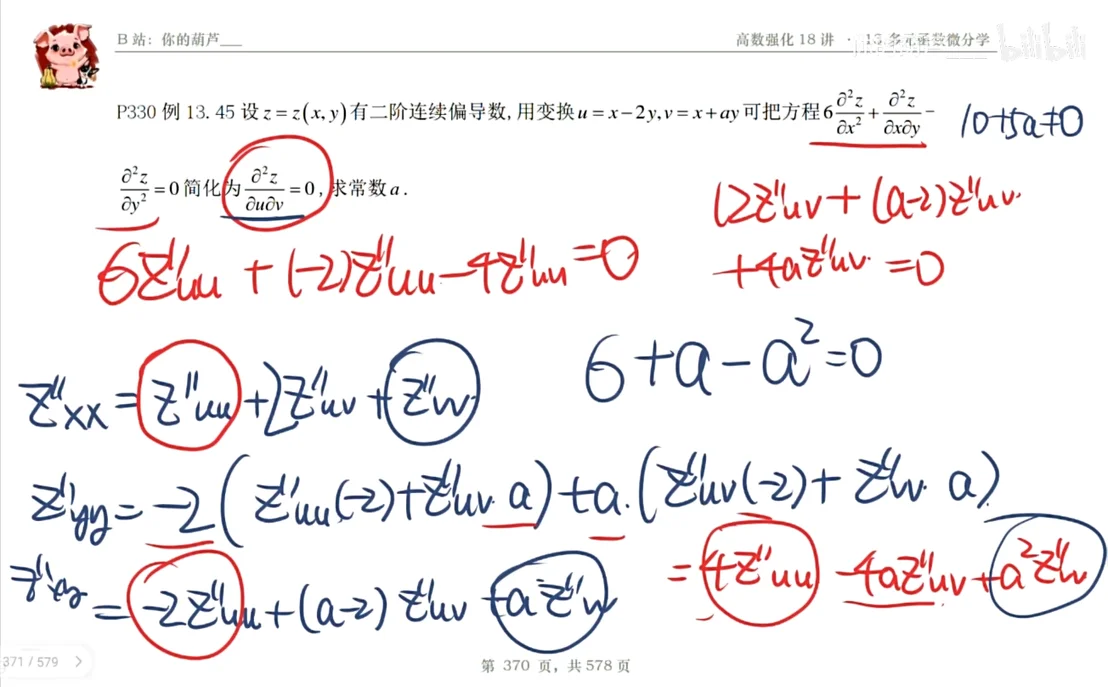 B 站：你的葫芦___
高数强化 18 讲 · 13 多元函数微分学
bilibili
P330 例 13. 45 设 z = z(x, y) 有二阶连续偏导数, 用变换 u = x − 2y, v = x + ay 可把方程 6 ∂²z/∂x² + ∂²z/∂x∂y −
10+5a≠0
∂²z/∂y² = 0 简化为 ∂²z/∂u∂v = 0, 求常数 a .
12z''uv + (a-2)z''uv
+4az''uv = 0
6z''uu + (-2)z''uu - 4z''uu = 0
6 + a - a² = 0
z''xx = z''uu + 2z''uv + z''vv
z''yy = -2( z''uu(-2) + z''uv· a) + a·(z''uv(-2) + z''vv· a)
= 4z''uu - 4az''uv + a²z''vv
z''xy = -2z''uu + (a-2) z''uv + a z''vv
371 / 579 >
第 370 页，共 578 页